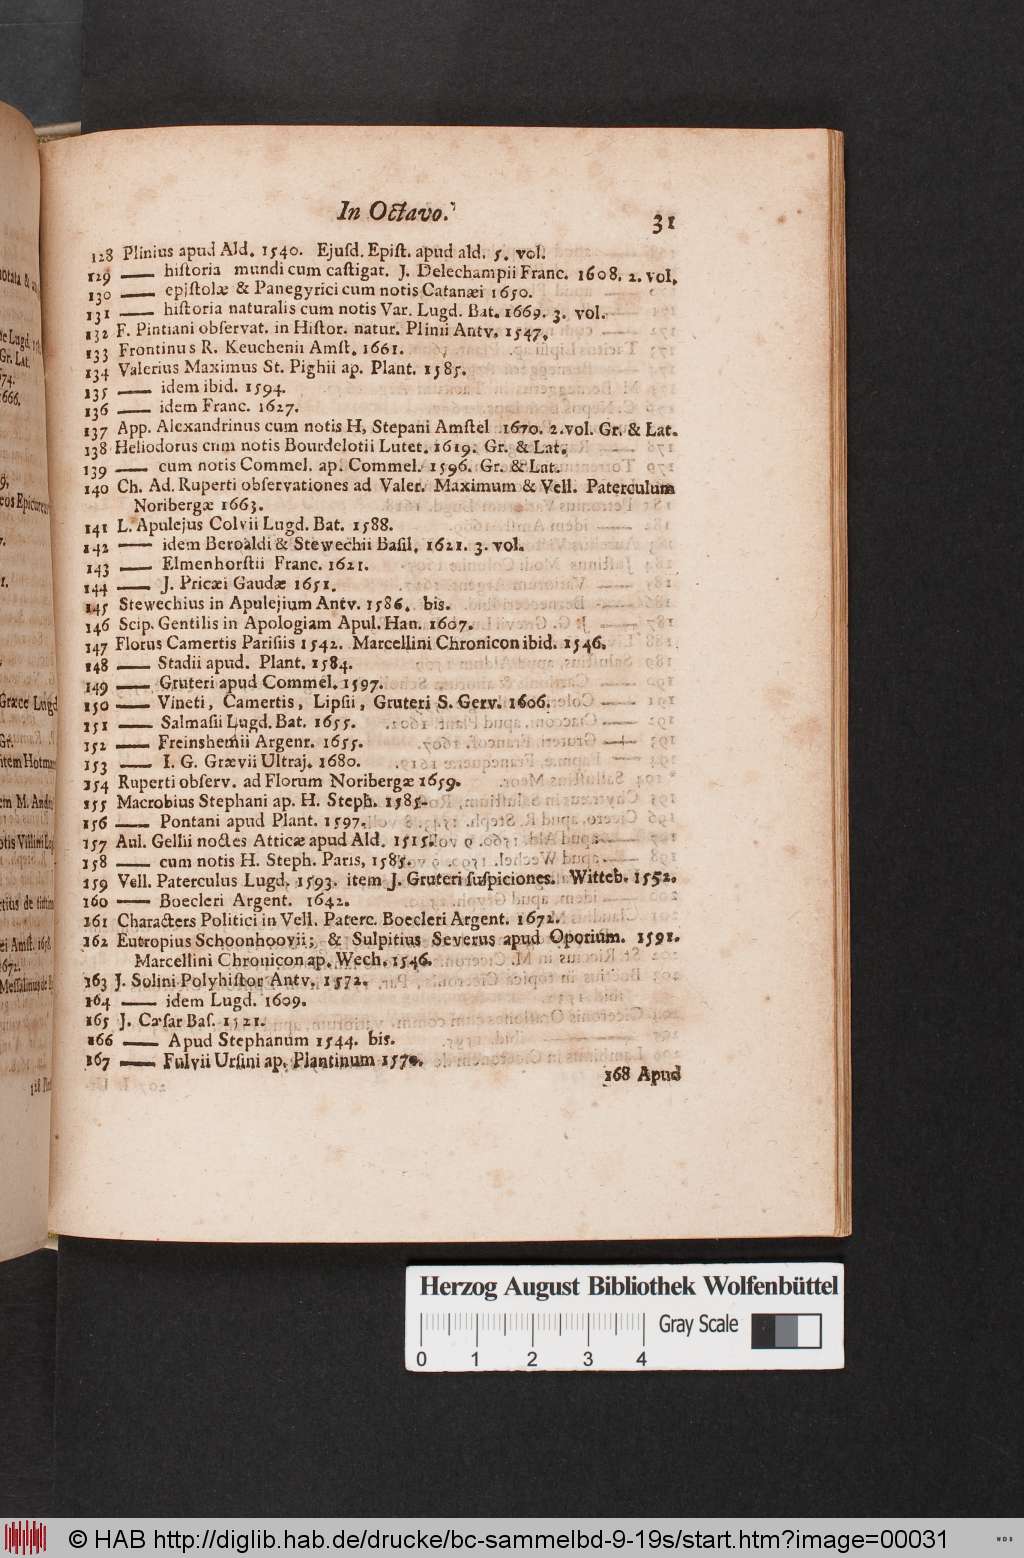 In Octavo.
31
128 Plinius apud Ald. 1540. Ejusd. Epist. apud ald. 5. vol.
129 —— historia mundi cum castigat. J. Delechampii Franc. 1608. 2. vol.
130 —— epistolæ & Panegyrici cum notis Catanæi 1650.
131 —— historia naturalis cum notis Var. Lugd. Bat. 1669. 3. vol.
132 F. Pintiani observat. in Histor. natur. Plinii Antv. 1547.
133 Frontinus R. Keuchenii Amst. 1661.
134 Valerius Maximus St. Pighii ap. Plant. 1585.
135 —— idem ibid. 1594.
136 —— idem Franc. 1627.
137 App. Alexandrinus cum notis H. Stepani Amstel 1670. 2. vol. Gr. & Lat.
138 Heliodorus cum notis Bourdelotii Lutet. 1619. Gr. & Lat.
139 —— cum notis Commel. ap. Commel. 1596. Gr. & Lat.
140 Ch. Ad. Ruperti observationes ad Valer. Maximum & Vell. Paterculum
Noribergæ 1663.
141 L. Apulejus Colvii Lugd. Bat. 1588.
142 —— idem Beroaldi & Stewechii Basil. 1621. 3. vol.
143 —— Elmenhorstii Franc. 1621.
144 —— J. Pricæi Gaudæ 1651.
145 Stewechius in Apulejium Antv. 1586. bis.
146 Scip. Gentilis in Apologiam Apul. Han. 1607.
147 Florus Camertis Parisiis 1542. Marcellini Chronicon ibid. 1546.
148 —— Stadii apud. Plant. 1584.
149 —— Gruteri apud Commel. 1597.
150 —— Vineti, Camertis, Lipsii, Gruteri S. Gerv. 1606.
151 —— Salmasii Lugd. Bat. 1655.
152 —— Freinshemii Argenr. 1655.
153 —— I. G. Grævii Ultraj. 1680.
154 Ruperti observ. ad Florum Noribergæ 1659.
155 Macrobius Stephani ap. H. Steph. 1585.
156 —— Pontani apud Plant. 1597.
157 Aul. Gellii noctes Atticæ apud Ald. 1515.
158 —— cum notis H. Steph. Paris, 1585.
159 Vell. Paterculus Lugd. 1593. item J. Gruteri suspiciones. Witteb. 1552.
160 —— Boecleri Argent. 1642.
161 Characters Politici in Vell. Paterc. Boecleri Argent. 1672.
162 Eutropius Schoonhovii; & Sulpitius Severus apud Oporium. 1591.
Marcellini Chronicon ap. Wech. 1546.
163 J. Solini Polyhistor Antv. 1572.
164 —— idem Lugd. 1609.
165 J. Cæsar Bas. 1521.
166 —— Apud Stephanum 1544. bis.
167 —— Fulvii Ursini ap. Plantinum 1570.
168 Apud
Herzog August Bibliothek Wolfenbüttel
Gray Scale
0 1 2 3 4
© HAB http://diglib.hab.de/drucke/bc-sammelbd-9-19s/start.htm?image=00031